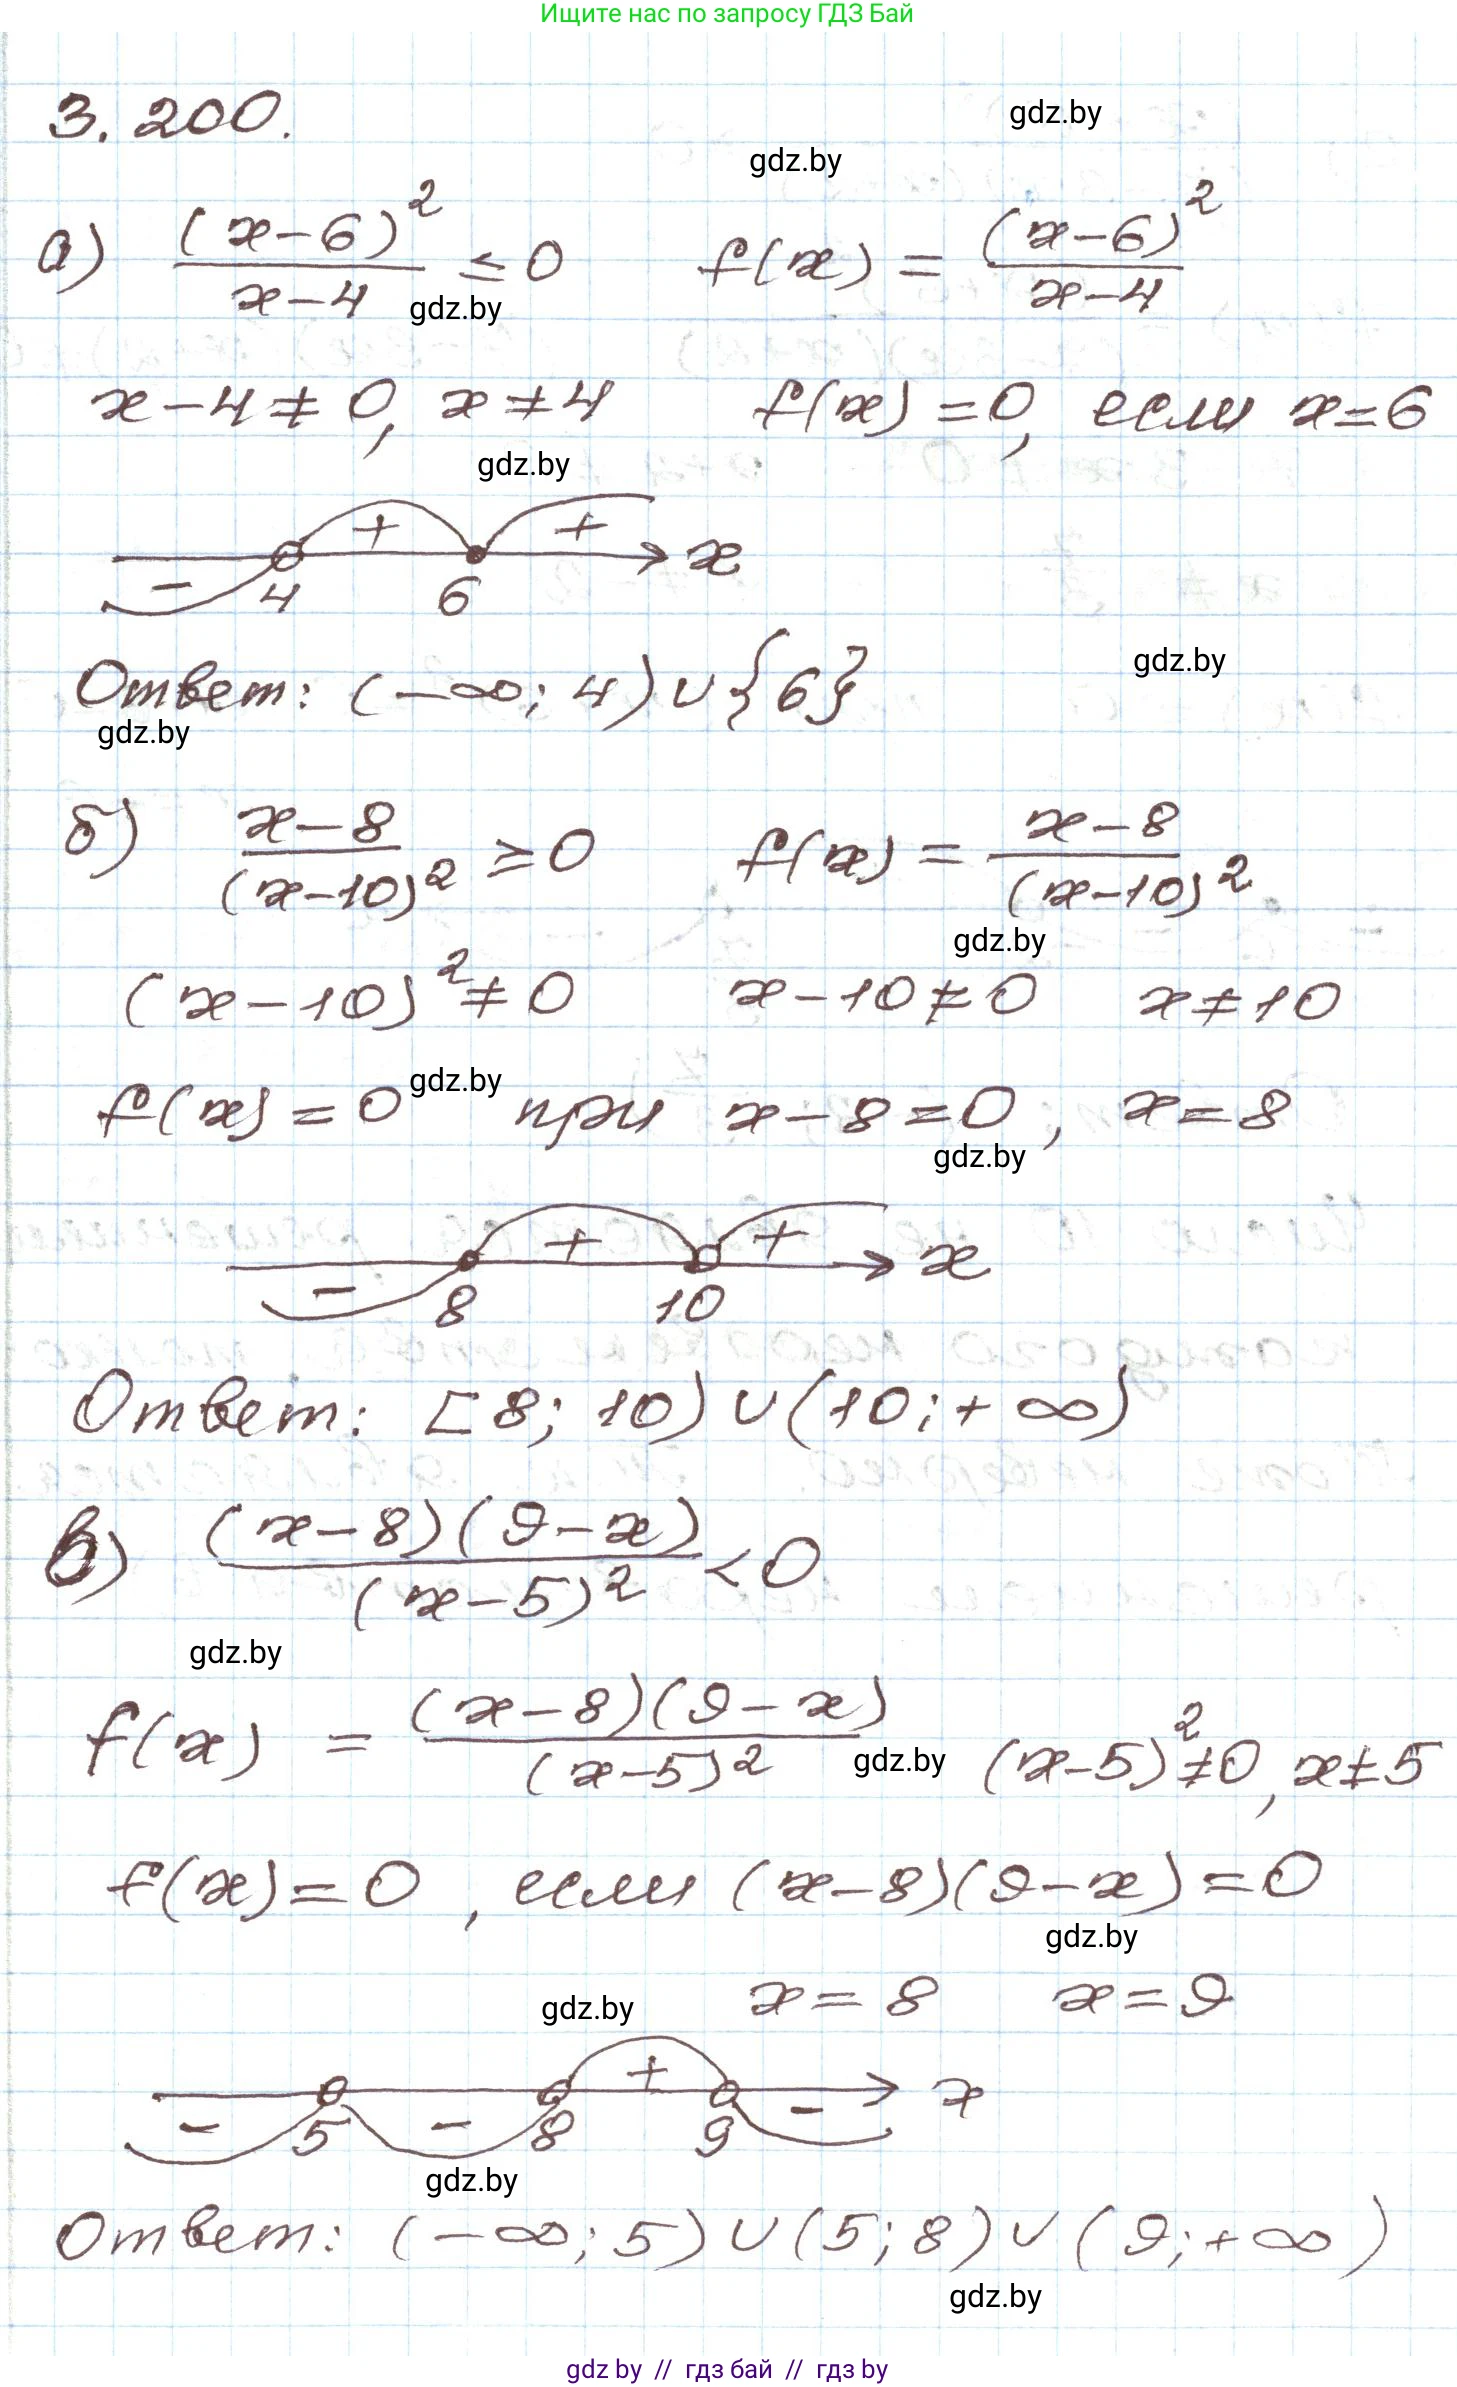 Ищите нас по запросу ГДЗ Бай
gdz.by
3.200.
gdz.by
а) (x-6)²/(x-4) ≤ 0   f(x) = (x-6)²/(x-4)
gdz.by
x-4≠0, x≠4   f(x)=0, если x=6
gdz.by
- 4 + 6 + x
gdz.by
Ответ: (-∞; 4)∪{6}
gdz.by
б) (x-8)/(x-10)² ≥ 0   f(x) = (x-8)/(x-10)²
gdz.by
(x-10)²≠0   x-10≠0   x≠10
gdz.by
f(x)=0 при x-8=0, x=8
gdz.by
- 8 + 10 + x
Ответ: [8; 10)∪(10;+∞)
в) (x-8)(9-x)/(x-5)² < 0
gdz.by
f(x) = (x-8)(9-x)/(x-5)²   (x-5)²≠0, x≠5
gdz.by
f(x)=0, если (x-8)(9-x)=0
gdz.by
x=8   x=9
gdz.by
- 5 - 8 + 9 - x
gdz.by
Ответ: (-∞; 5)∪(5; 8)∪(9;+∞)
gdz.by
gdz by // гдз бай // гдз by